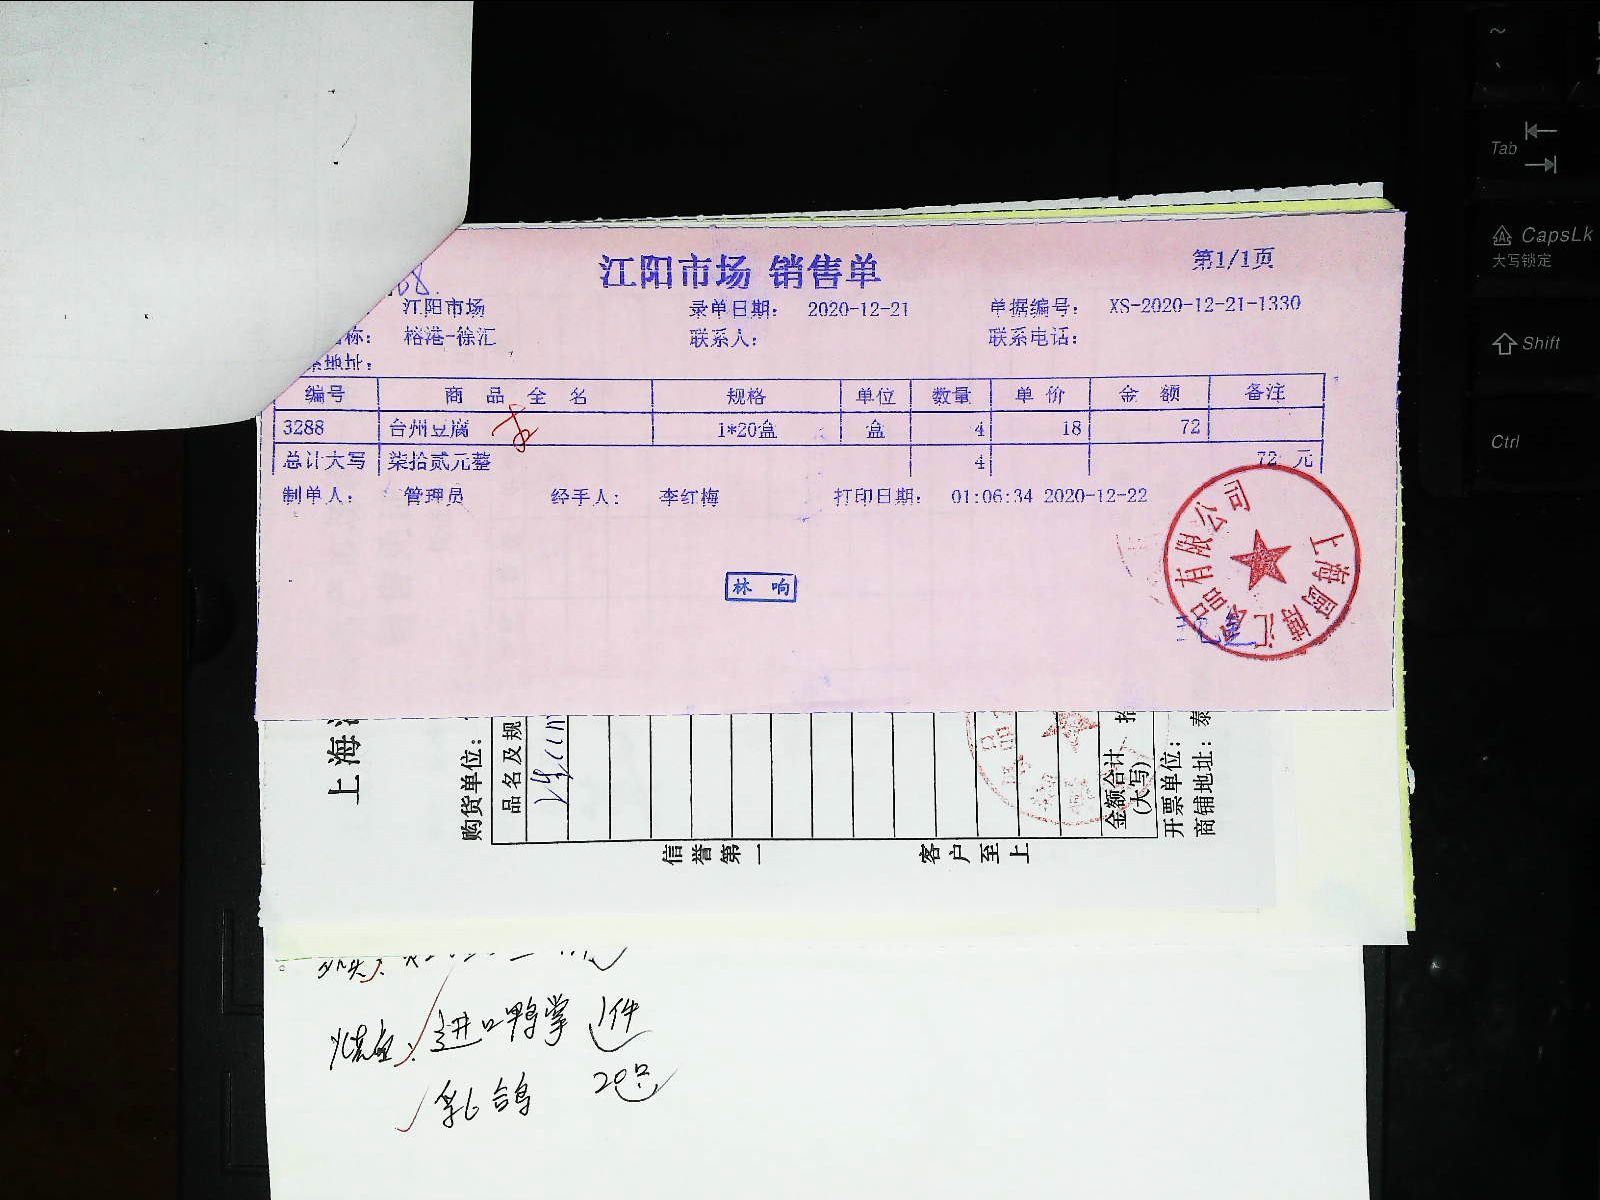 江阳市场 销售单
第1/1页
68.
江阳市场 录单日期： 2020-12-21 单据编号： XS-2020-12-21-1330
称： 榕港-徐汇 联系人： 联系电话：
地址：
编号 商 品 全 名 规格 单位 数量 单 价 金 额 备注
3288 台州豆腐 1*20盒 盒 4 18 72
总计大写 柒拾贰元整 4 72 元
制单人： 管理员 经手人： 李红梅 打印日期： 01:06:34 2020-12-22
林 响
品有限公司
上海
上海
购货单位：
品名及规
金额合计
(大写)
拾
开票单位：
商铺地址：泰
信誉第一 客户至上
进口鸭掌 1件
乳鸽 20只
~
Tab
CapsLk
大写锁定
Shift
Ctrl